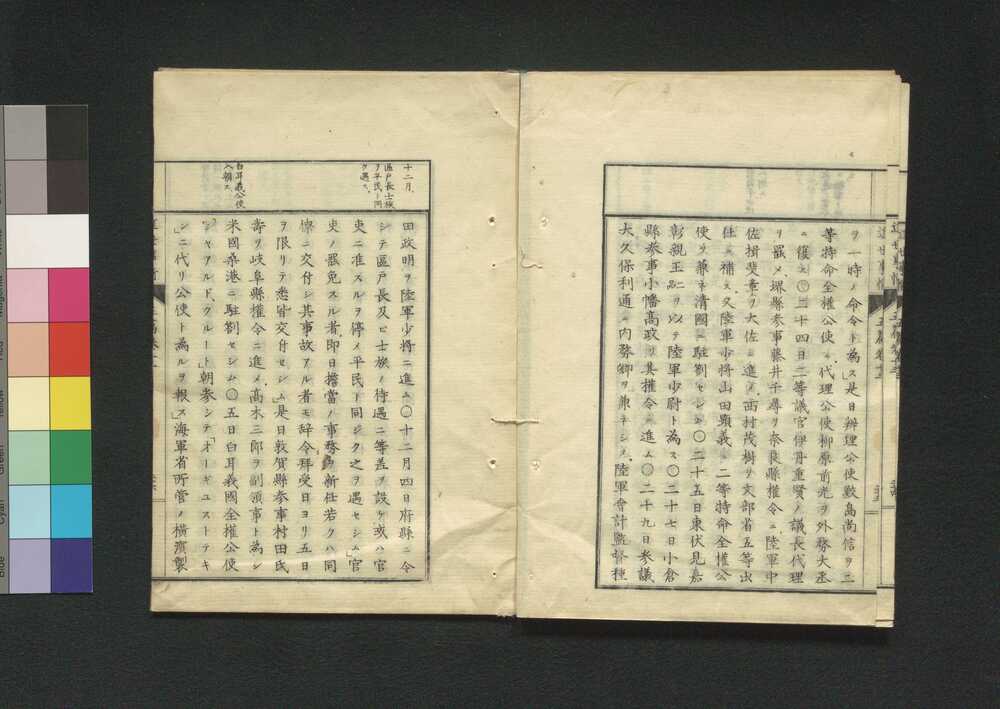 ヲ一時ノ命令ト為ス」是日辨理公使數島尚信ヲ二
等持命全權公使ニ、代理公使柳原前光ヲ外務大丞
ニ復ス〇二十四日二等議官伊丹重賢ノ議長代理
ヲ罷メ、堺縣參事藤井千尋ヲ奈良縣權令ニ、陸軍中
佐揖斐章ヲ大佐ニ進メ、西村茂樹ヲ文部省五等出
仕ニ補ス、又陸軍少將山田顯義ニ二等持命全權公
使ヲ兼ネ清國ニ駐劄セシム〇二十五日東伏見嘉
彰親王ニヲ以テ陸軍少尉ト為ス〇二十七日小倉
縣參事小幡高政ヲ其權令ニ進ム〇二十九日參議
大久保利通ニ内務卿ヲ兼ネシメ、陸軍會計監督種
十二月
區戸長士族
ヲ平民ト同
ク遇ス
白耳義公使
入朝ス
田政明ヲ陸軍少將ニ進ム〇十二月四日府縣ニ令
シテ區戸長及ヒ士族ノ待遇ニ等差ヲ設ケ或ハ官
吏ニ准スルヲ停メ平民ト同ジク之ヲ遇セシム」官
吏ノ罷免スル者、即日擔當ノ事務ヲ新任若クハ同
僚ニ交付シ其事故アル者モ辞令拜受日ヨリ五日
ヲ限リテ悉皆交付セシム」是日敦賀縣參事村田氏
壽ヲ岐阜縣權令ニ進メ、高木三郎ヲ副領事ト為シ
米國桑港ニ駐劄セシム〇五日白耳義國全權公使
シャアルド、グルート」朝參シテ「オーギュストトテキ
」シニ代リ公使ト為ルヲ報ス」海軍省所管ノ横濱製